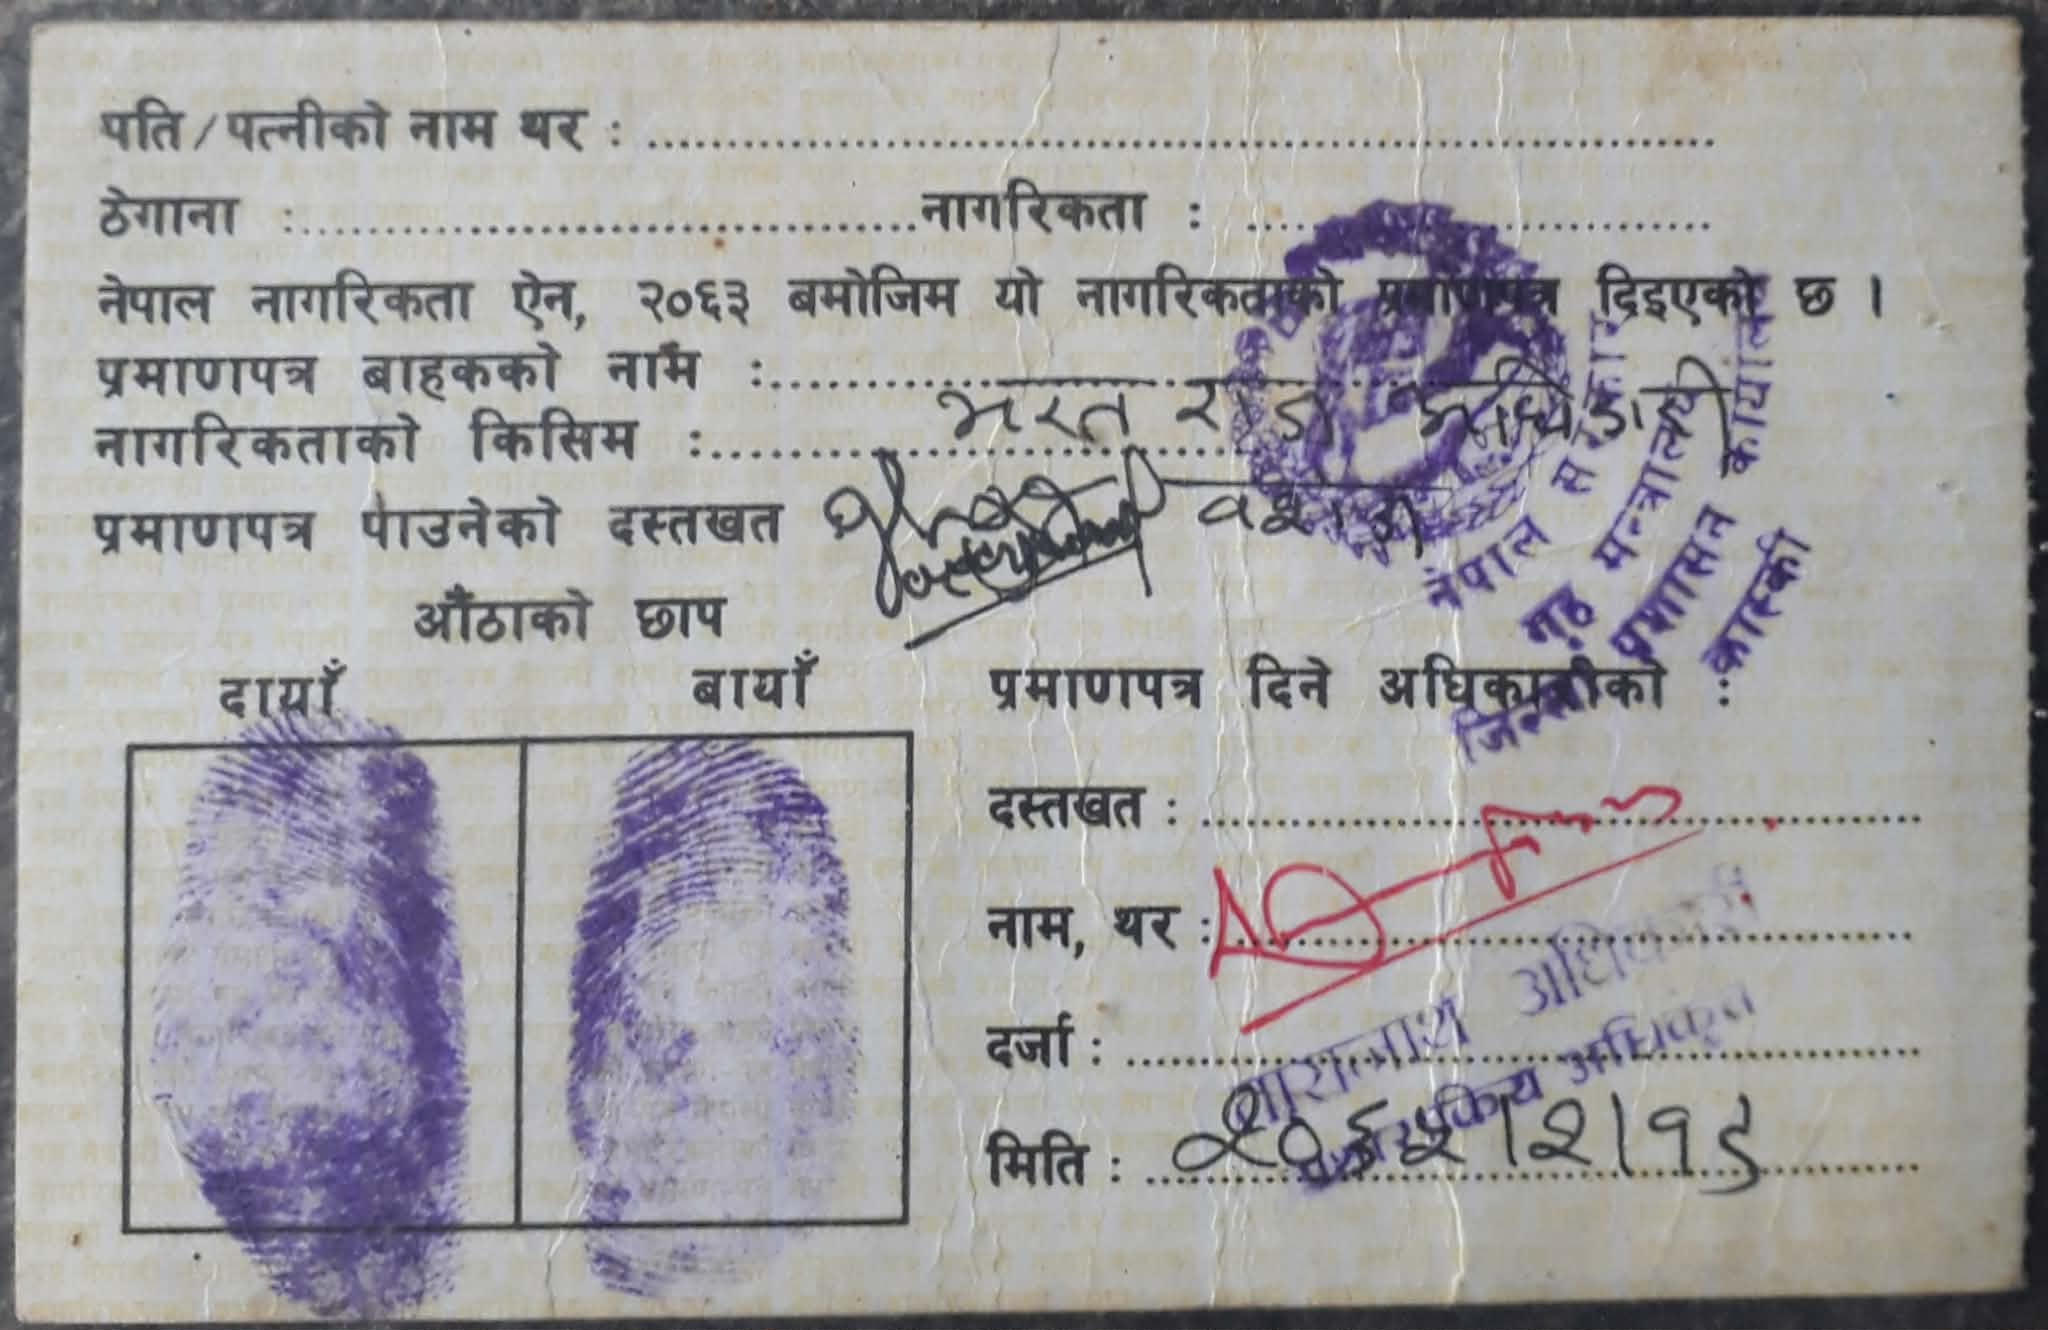 पति/पत्नीको नाम थर : ........................................
ठेगाना :........................................नागरिकता : ....................
नेपाल नागरिकता ऐन, २०६३ बमोजिम यो नागरिकताको प्रमाणपत्र दिइएको छ ।
प्रमाणपत्र बाहकको नाम :.................... भरत राज अधिकारी
नागरिकताको किसिम :.................... वंशज
प्रमाणपत्र पाउनेको दस्तखत
औंठाको छाप
दायाँ बायाँ
नेपाल सरकार
गृह मन्त्रालय
जिल्ला प्रशासन कार्यालय
कास्की
प्रमाणपत्र दिने अधिकारीको :
दस्तखत : ........................................
नाम, थर : ........................................
अधिकारी
दर्जा : ........................................
अधिकृत
मिति : २०६५।२।१९